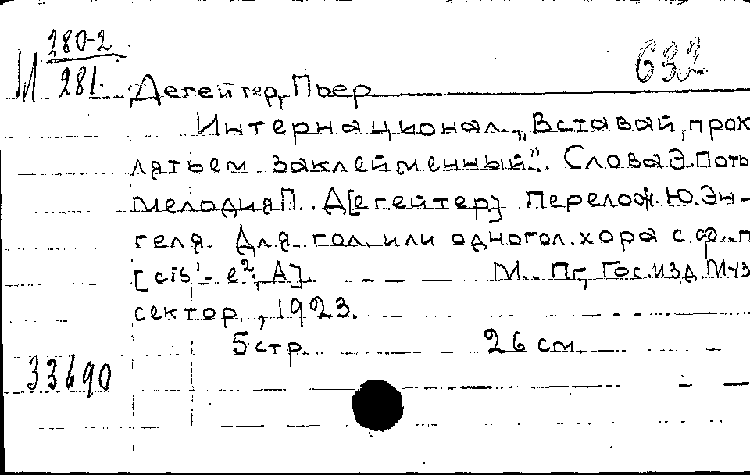 М 280-2
281.
632
Дегейтер, Пьер
Интернационал „Вставай, прок
лятьем заклейменный". Слова Э. Поть
мелодия П. Д[егейтер] Перелож. Ю. Эн-
геля. Для гол. или одногол. хора с ф.-п
[cis¹ - e², A] М. Пг, Гос. изд. Муз
сектор, 1923.
5 стр. 26 см
33690